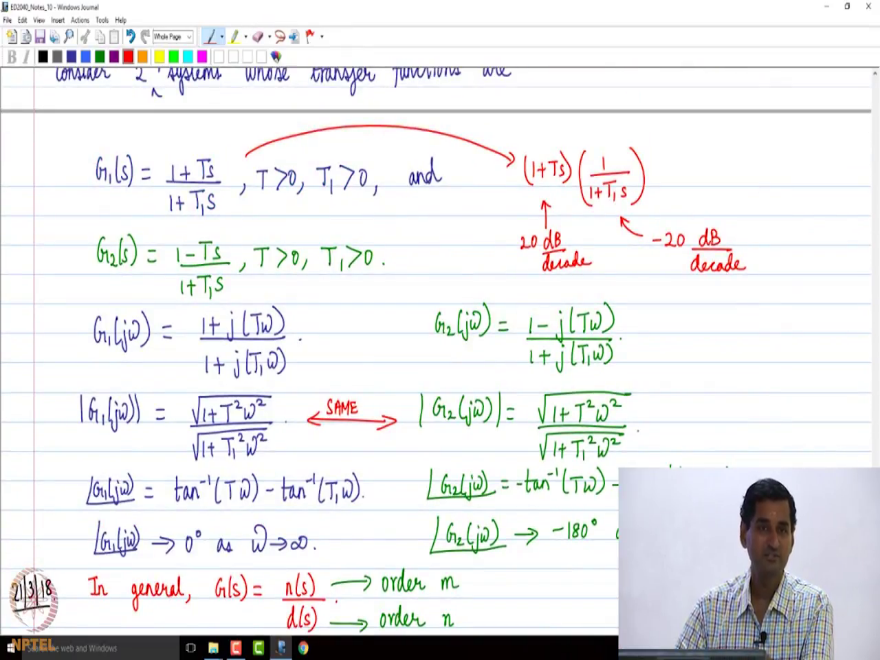 ED2040_Notes_10 - Windows Journal
File Edit View Insert Actions Tools Help
Whole Page
B I
consider 2 systems whose transfer functions are
G₁(s) = (1+Ts)/(1+T₁s), T>0, T₁>0, and (1+Ts)(1/(1+T₁s))
20 dB/decade -20 dB/decade
G₂(s) = (1-Ts)/(1+T₁s), T>0, T₁>0.
G₁(jω) = (1+j(Tω))/(1+j(T₁ω)). G₂(jω) = (1-j(Tω))/(1+j(T₁ω)).
|G₁(jω)| = √(1+T²ω²)/√(1+T₁²ω²). SAME |G₂(jω)| = √(1+T²ω²)/√(1+T₁²ω²).
∠G₁(jω) = tan⁻¹(Tω) - tan⁻¹(T₁ω). ∠G₂(jω) = -tan⁻¹(Tω) -
∠G₁(jω) → 0° as ω→∞. ∠G₂(jω) → -180°
21/3/18 In general, G(s) = n(s)/d(s). → order m
→ order n
NPTEL the web and Windows